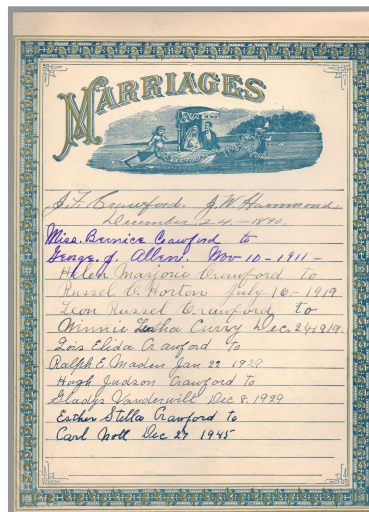 MARRIAGES
J. F. Crawford. J. W. Hammond.
December 24.—1890.
Miss. Bernice Crawford to
George. J. Allen. Nov 10-1911-
Helen Marjorie Crawford to
Russel O. Horton July 16-1919
Leon Russel Crawford to
Winnie Curry Dec. 24 1919.
Lois Elida Crawford to
Ralph E Maden Jan 22 1929
Hugh Judson Crawford to
Gladys Vanderwilt Dec 8. 1929
Esther Stella Crawford to
Carl Noll Dec 27 1945